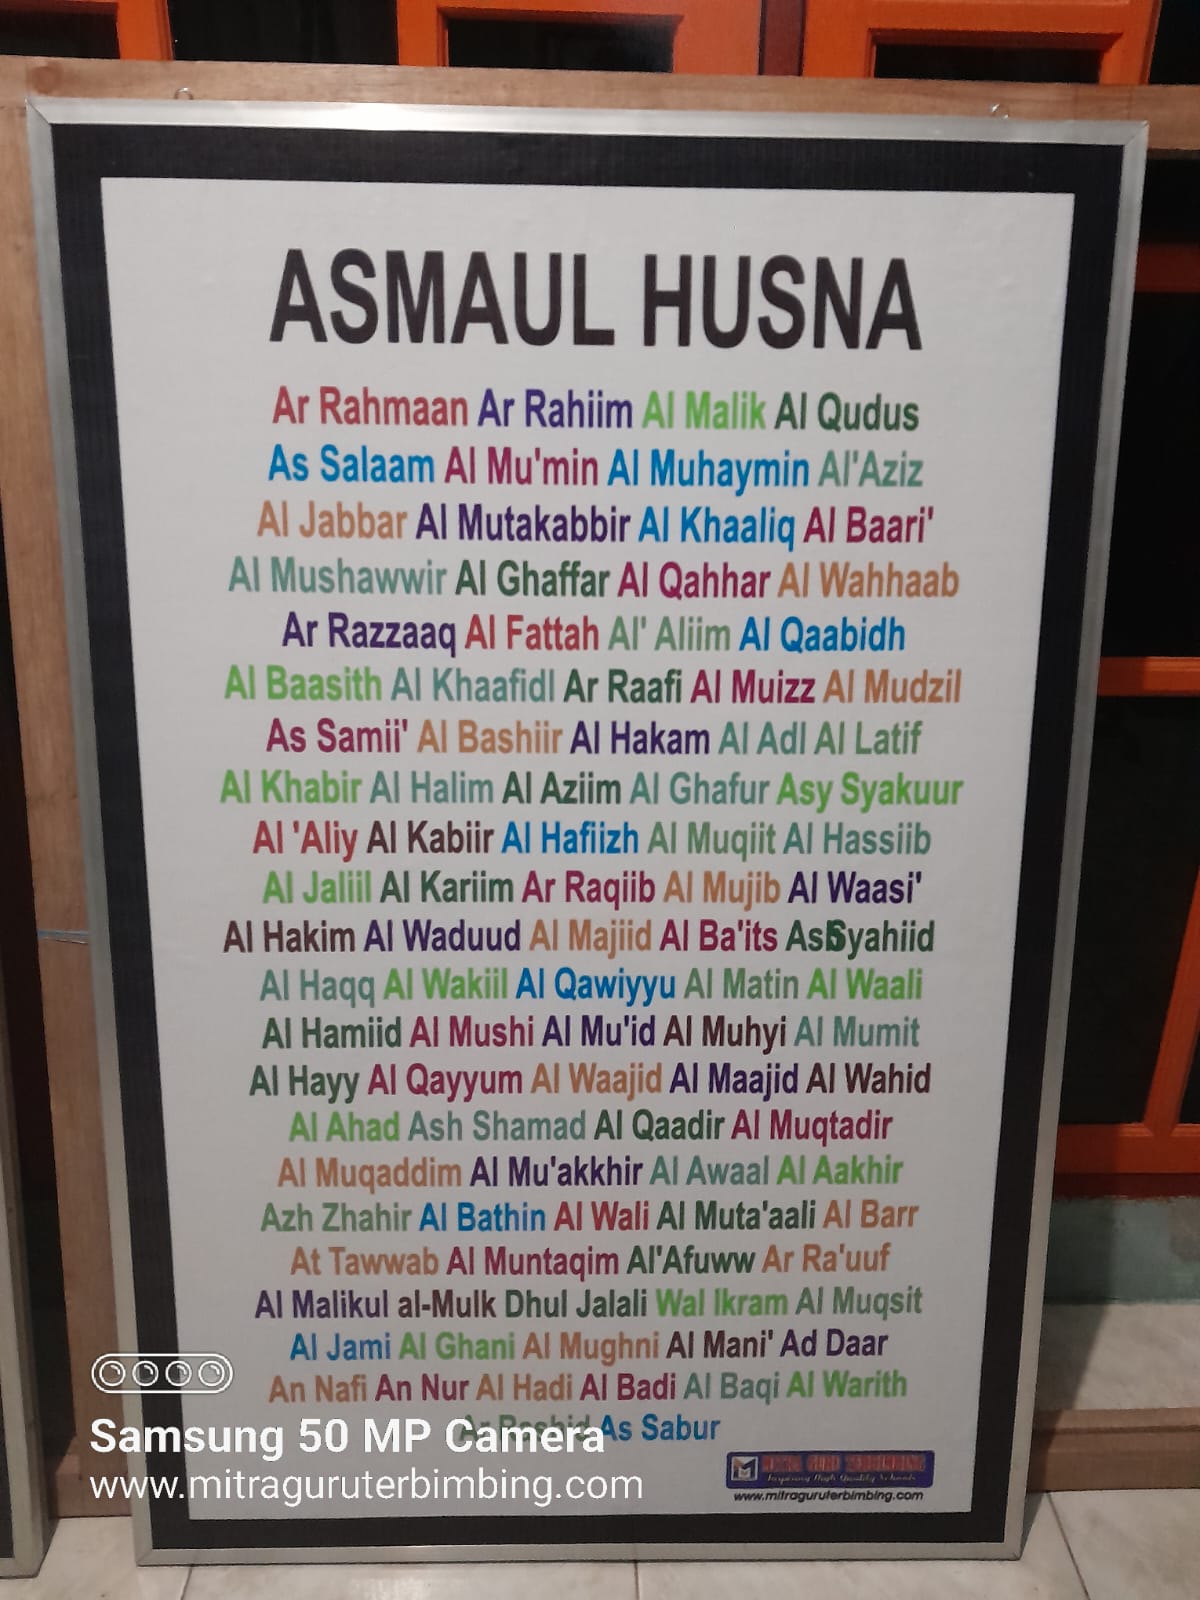 ASMAUL HUSNA
Ar Rahmaan Ar Rahiim Al Malik Al Qudus
As Salaam Al Mu'min Al Muhaymin Al'Aziz
Al Jabbar Al Mutakabbir Al Khaaliq Al Baari'
Al Mushawwir Al Ghaffar Al Qahhar Al Wahhaab
Ar Razzaaq Al Fattah Al' Aliim Al Qaabidh
Al Baasith Al Khaafidl Ar Raafi Al Muizz Al Mudzil
As Samii' Al Bashiir Al Hakam Al Adl Al Latif
Al Khabir Al Halim Al Aziim Al Ghafur Asy Syakuur
Al 'Aliy Al Kabiir Al Hafiizh Al Muqiit Al Hassiib
Al Jaliil Al Kariim Ar Raqiib Al Mujib Al Waasi'
Al Hakim Al Waduud Al Majiid Al Ba'its Syahiid
Al Haqq Al Wakiil Al Qawiyyu Al Matin Al Waali
Al Hamiid Al Mushi Al Mu'id Al Muhyi Al Mumit
Al Hayy Al Qayyum Al Waajid Al Maajid Al Wahid
Al Ahad Ash Shamad Al Qaadir Al Muqtadir
Al Muqaddim Al Mu'akkhir Al Awaal Al Aakhir
Azh Zhahir Al Bathin Al Wali Al Muta'aali Al Barr
At Tawwab Al Muntaqim Al'Afuww Ar Ra'uuf
Al Malikul al-Mulk Dhul Jalali Wal Ikram Al Muqsit
Al Jami Al Ghani Al Mughni Al Mani' Ad Daar
An Nafi An Nur Al Hadi Al Badi Al Baqi Al Warith
Ar Rashid As Sabur
MITRA GURU TERBIMBING
Inspiring High Quality Schools
www.mitraguruterbimbing.com
Samsung 50 MP Camera
www.mitraguruterbimbing.com